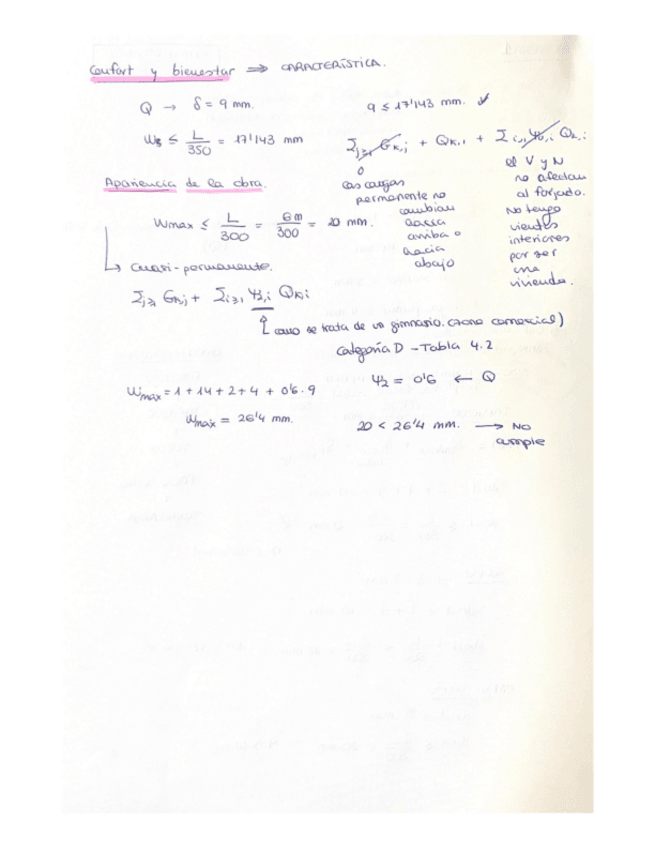 Confort y bienestar ⇒ CARACTERÍSTICA.
Q → δ = 9 mm.
9 ≤ 17'143 mm. ✓
W ≤ L/350 = 17'143 mm
Σj≥1 Gk,j + Qk,1 + Σi>1 Ψ0,i Qk,i
0
Las cargas
permanente no
cambian
hacia
arriba o
hacia
abajo
el V y N
no afectan
al forjado.
No tengo
vientos
interiores
por ser
una
vivienda.
Apariencia de la obra.
Wmax ≤ L/300 = 6m/300 = 20 mm.
↳ Cuasi-permanente.
Σj≥1 Gk,j + Σi≥1 Ψ2,i Qk,i
como se trata de un gimnasio. (zona comercial)
categoría D - Tabla 4.2
Ψ2 = 0'6 ← Q
Wmax = 1 + 14 + 2 + 4 + 0'6 · 9
Wmax = 26'4 mm.
20 < 26'4 mm. → NO
cumple